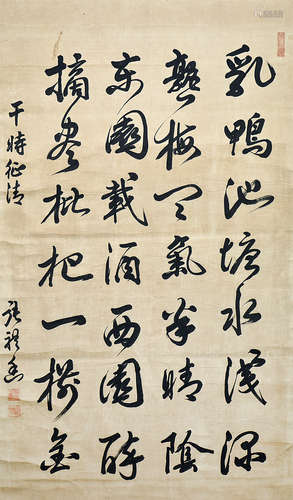 乳鸭池塘水浅深
熟梅天气半晴阴
东园载酒西园醉
摘尽枇杷一树金
干时征清